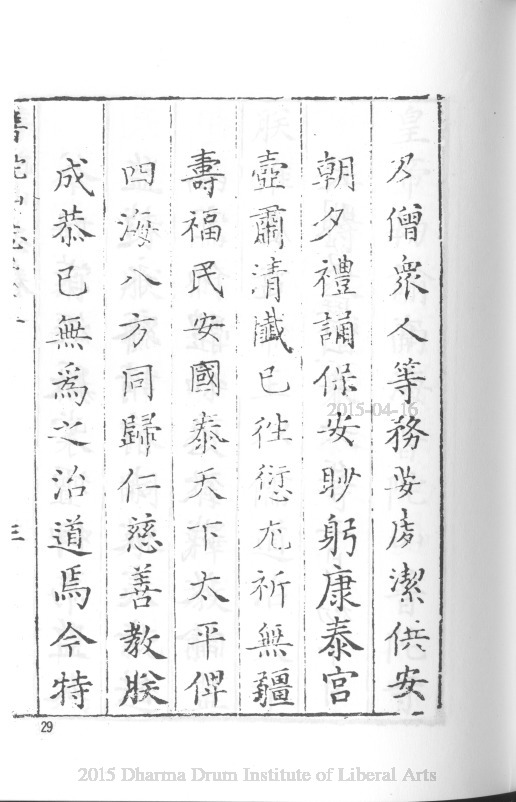 及僧衆人等務要虔潔供安
朝夕禮誦保安眇躬康泰宮
壼肅清懺已徃愆尤祈無疆
壽福民安國泰天下太平俾
四海八方同歸仁慈善教朕
成恭已無為之治道焉今特
三
29
2015-04-16
2015 Dharma Drum Institute of Liberal Arts